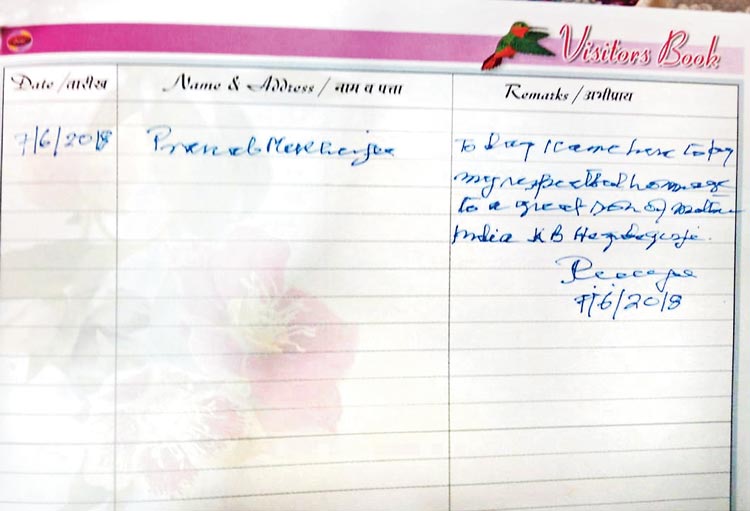 Visitors Book
Date / तारीख Name & Address / नाम व पत्ता Remarks / अभीप्राय
7/6/2018 Pranab Mukherjee To day I came here to pay
my respect and homage
to a great son of Mother
India KB Hegdeguji.
7/6/2018